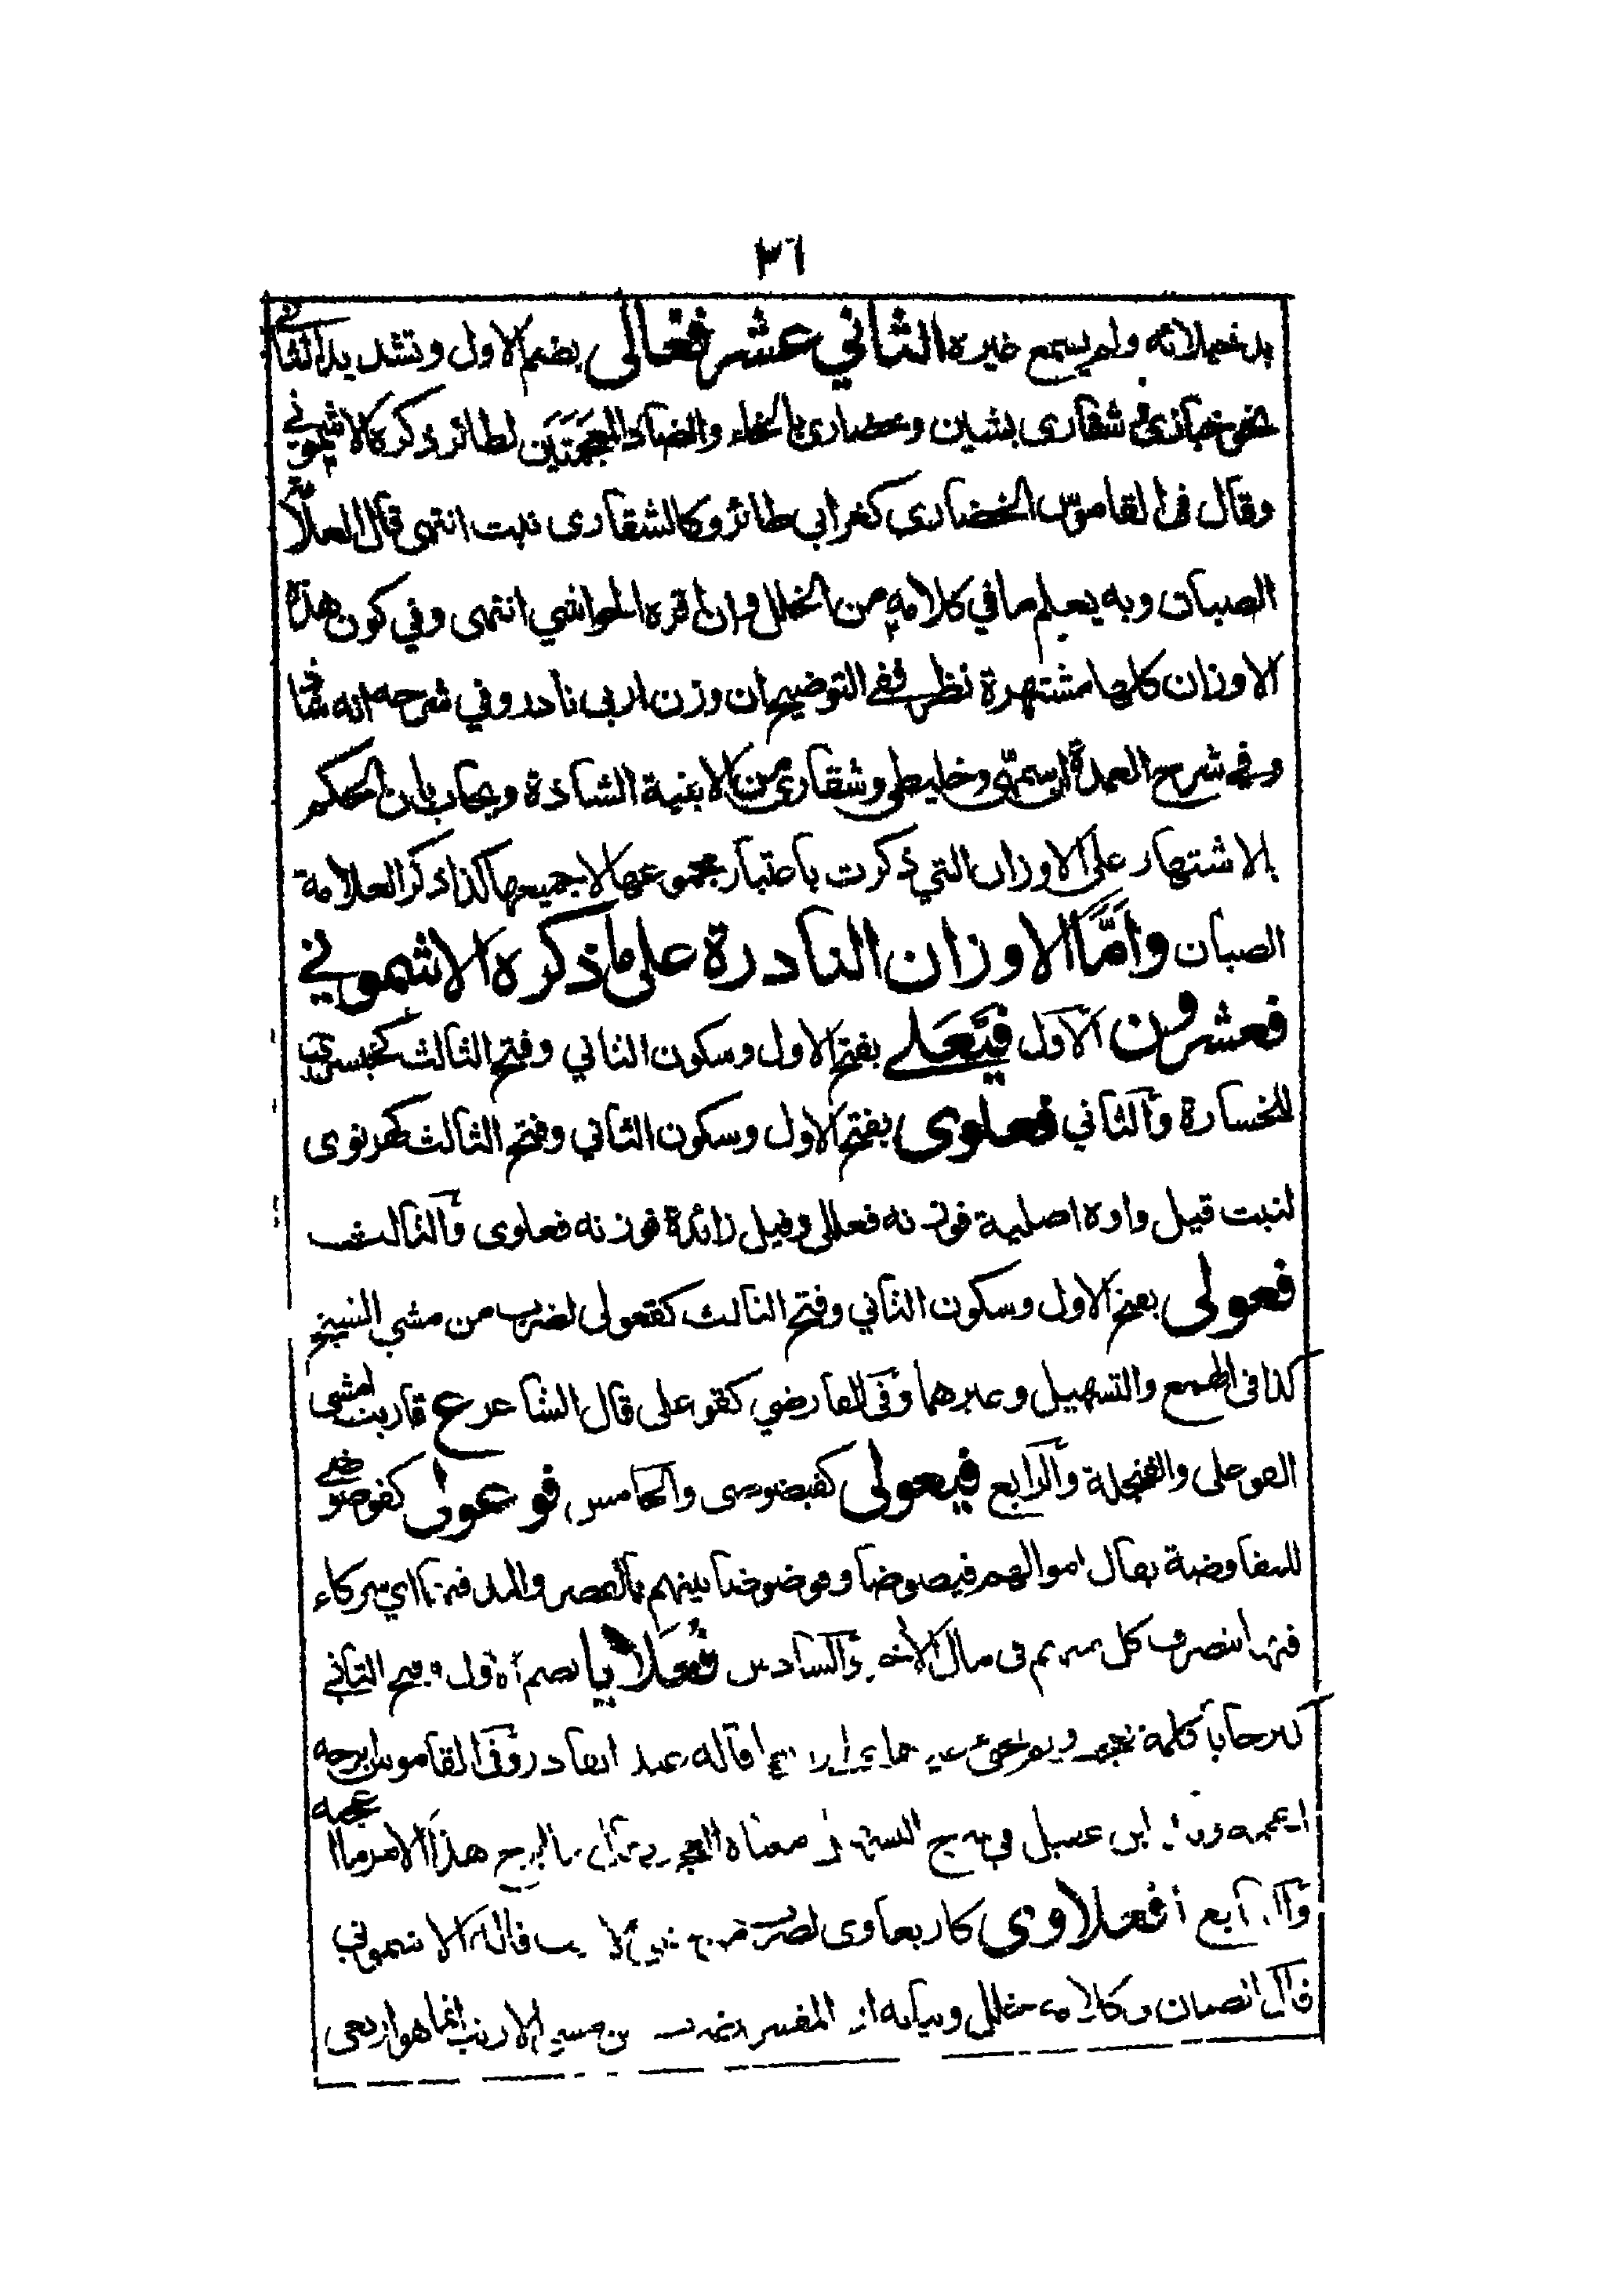 ٣٦
ولم يسمع غيره الثاني عشر فعّالى بضم الاول وتشديد الثاني
نحو خبازى شقارى بشين وخضارى بالخاء والضاد المعجمتين لطائر ذكره الاشموني
وقال في القاموس الخضارى كغرابي طائر وكالشقارى نبت انتهى قال العلامة
الصبان وبه يعلم ما في كلامه من الخلل وان اقره الحواشي انتهى وفي كون هذه
الاوزان كلها مشتهرة نظر ففي التوضيح ان وزن اربى نادر وفي شرحه انه شاذ
وفي شرح العمدة ان سمّهى وخليطى وشقارى من الابنية الشاذة ويجاب بان الحكم
بالاشتهار على الاوزان التي ذكرت باعتبار مجموعها لا جميعها كذا ذكر العلامة
الصبان وَأَمَّا الاوزان النادرة على ما ذكره الاشموني
فعشرون الاول فَيْعَلى بفتح الاول وسكون الثاني وفتح الثالث كخيسرى
للخسارة والثاني فعلوى بفتح الاول وسكون الثاني وفتح الثالث كهرنوى
لنبت قيل واوه اصلية فوزنه فعللى وقيل زائدة فوزنه فعلوى والثالث
فعولى بفتح الاول وسكون الثاني وفتح الثالث كقعولى لضرب من مشي الشيخ
كذا في الهمع والتسهيل وغيرهما وفي الفارضي كقوعلى قال الشاعر ع قاربت امشي
القوعلى والفنجلة والرابع فيعولى كفيضوضى والخامس فوعولى كفوضوضى
للمفاوضة يقال اموالهم فيضوضا وفوضوضا بينهم بالقصر والمد فيهما اي شركاء
فيها يتصرف كل منهم في مال الآخر والسادس فُعَلَايا بضم الاول وفتح الثاني
كبرحايا كلمة تعجب قاله عبد القادر وفي القاموس ابرحه
ابن عقيل في معناه العجب ما ابرح هذا الامر
والسابع أفعلاوى كاربعاوى لضرب من مشي الارنب قاله الاشموني
قال الصبان في كلامه خلل وبيانه ان المفسر بضرب من مشي الارنب انما هو اربعى